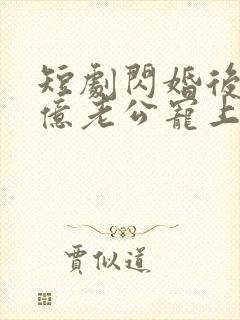 短劇閃婚後
億老公寵上
賈似道